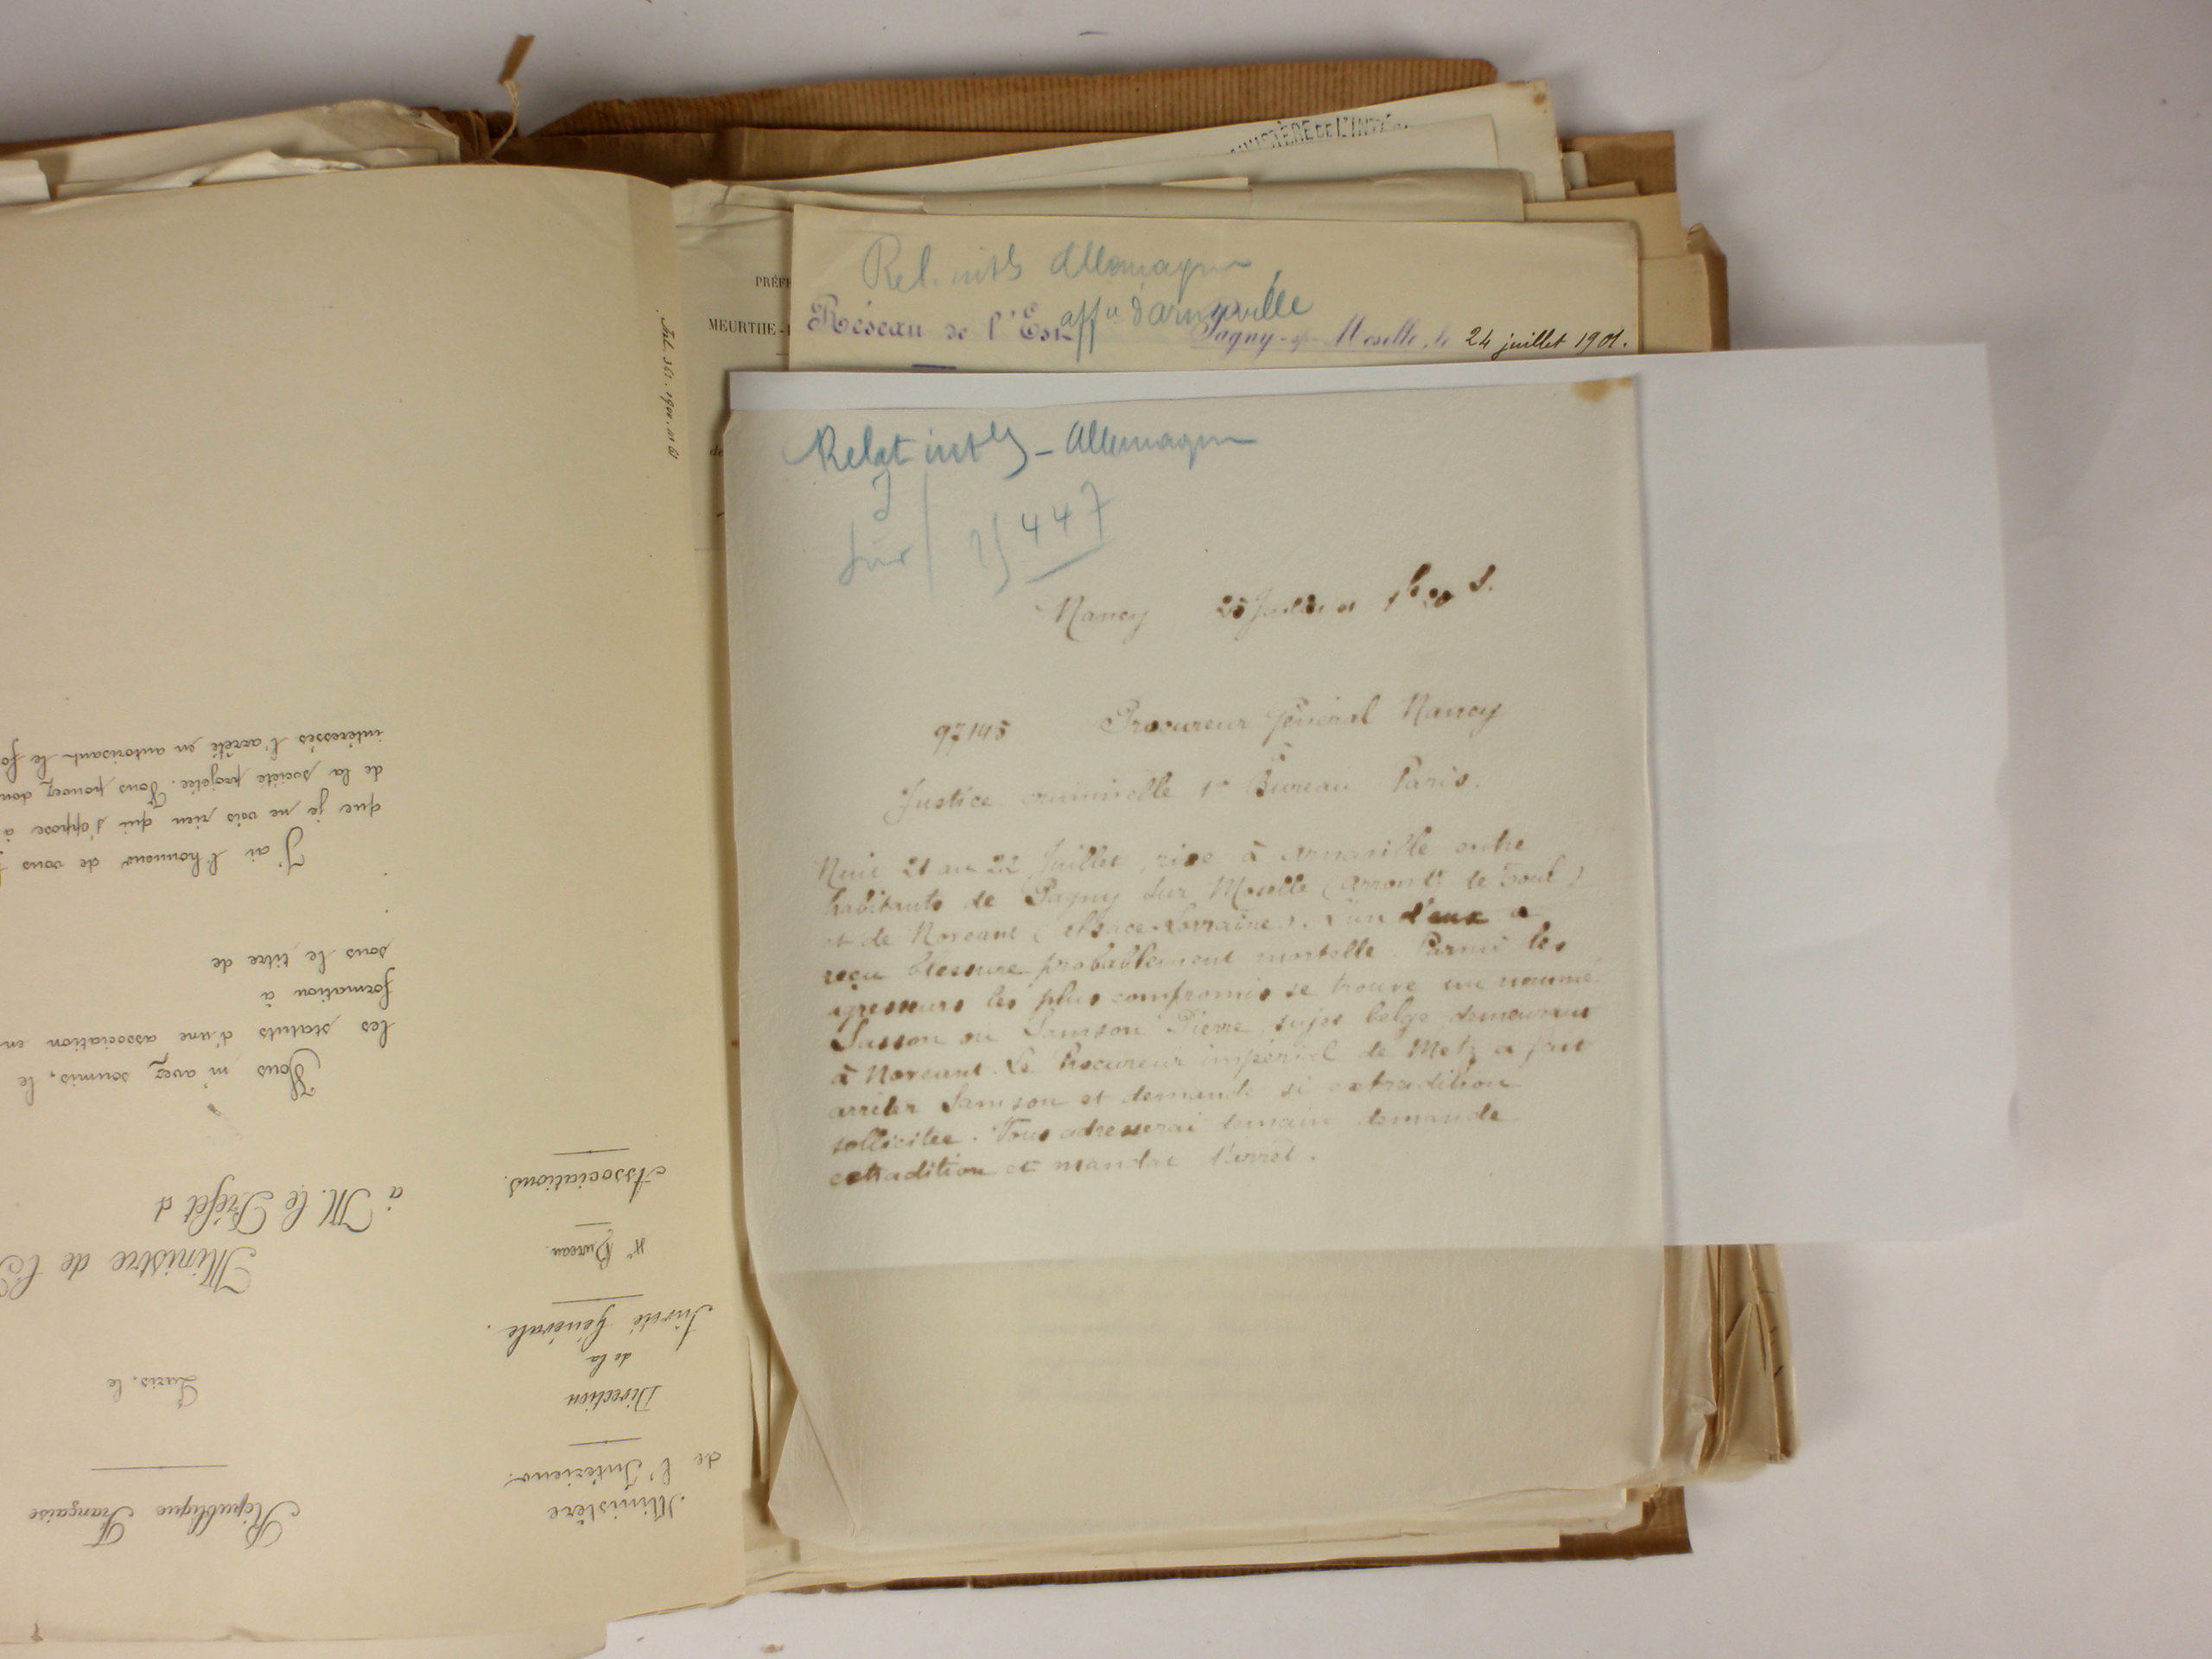 MINISTÈRE DE L'INT
PRÉF
MEURTHE-
de
Rel. intles Allemagne
affre d'arnaville
Réseau de l'Est
Pagny-s-Moselle, le 24 juillet 1901.
Relat intles - Allemagne
J
Sur
447
Nancy 25 Juillet 01 1h20 S.
97145 Procureur Général Nancy
à
Justice criminelle 1er Bureau Paris.
Nuit 21 au 22 Juillet, rixe à Arnaville entre
habitants de Pagny sur Moselle (arront de Toul)
et de Noveant (Alsace-Lorraine). L'un d'eux a
reçu blessure probablement mortelle. Parmi les
agresseurs les plus compromis se trouve un nommé
Sasson ou Samson Pierre, sujet belge demeurant
à Noveant. Le Procureur impérial de Metz a fait
arrêter Samson et demande si extradition
sollicitée. Vous adresserai demain demande
extradition et mandat d'arrêt.
Ministère
de l'Intérieur.
Direction
de la
Sûreté Générale.
Bureau.
Associations.
République Française
Paris, le
Ministre de l'I
à M. le Préfet d
Vous m'avez soumis, le
les statuts d'une association en
formation à
sous le titre de
J'ai l'honneur de vous
que je ne vois rien qui s'oppose à
de la société projetée. Vous pouvez don
intéressés l'arrêté en autorisant le fo